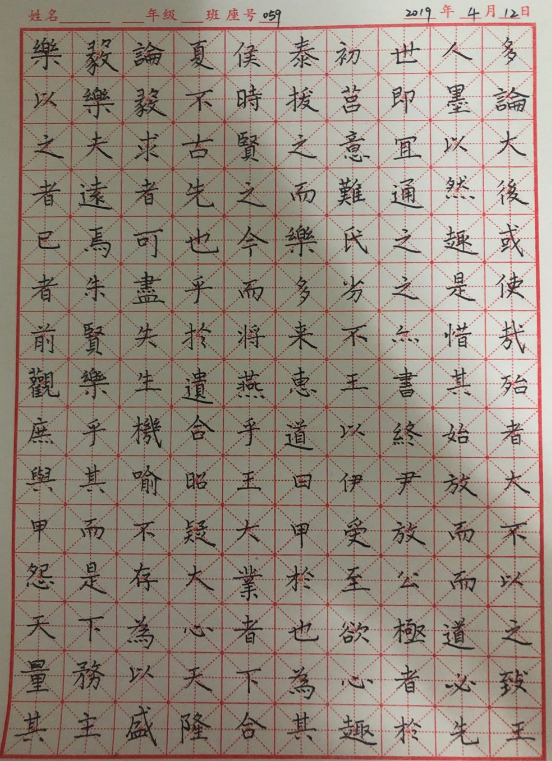 姓名 年級 班 座号 059 2019 年 4 月 12 日
樂毅論夏侯泰初世人多
以樂毅不時拔莒即墨論
之夫求古賢之意宜以大
者遠者先之而難通然後
已焉可也今樂氏之趣或
者朱盡乎而多劣之是使
前賢失於將来不亦惜哉
觀樂生遺燕惠王書其殆
庶乎機合乎道以終始者
與其喻昭王曰伊尹放大
甲而不疑大甲受放而不
怨是存大業於至公而以
天下為心者也欲極道之
量務以天下為心者必致
其主盛隆合其趣於先王